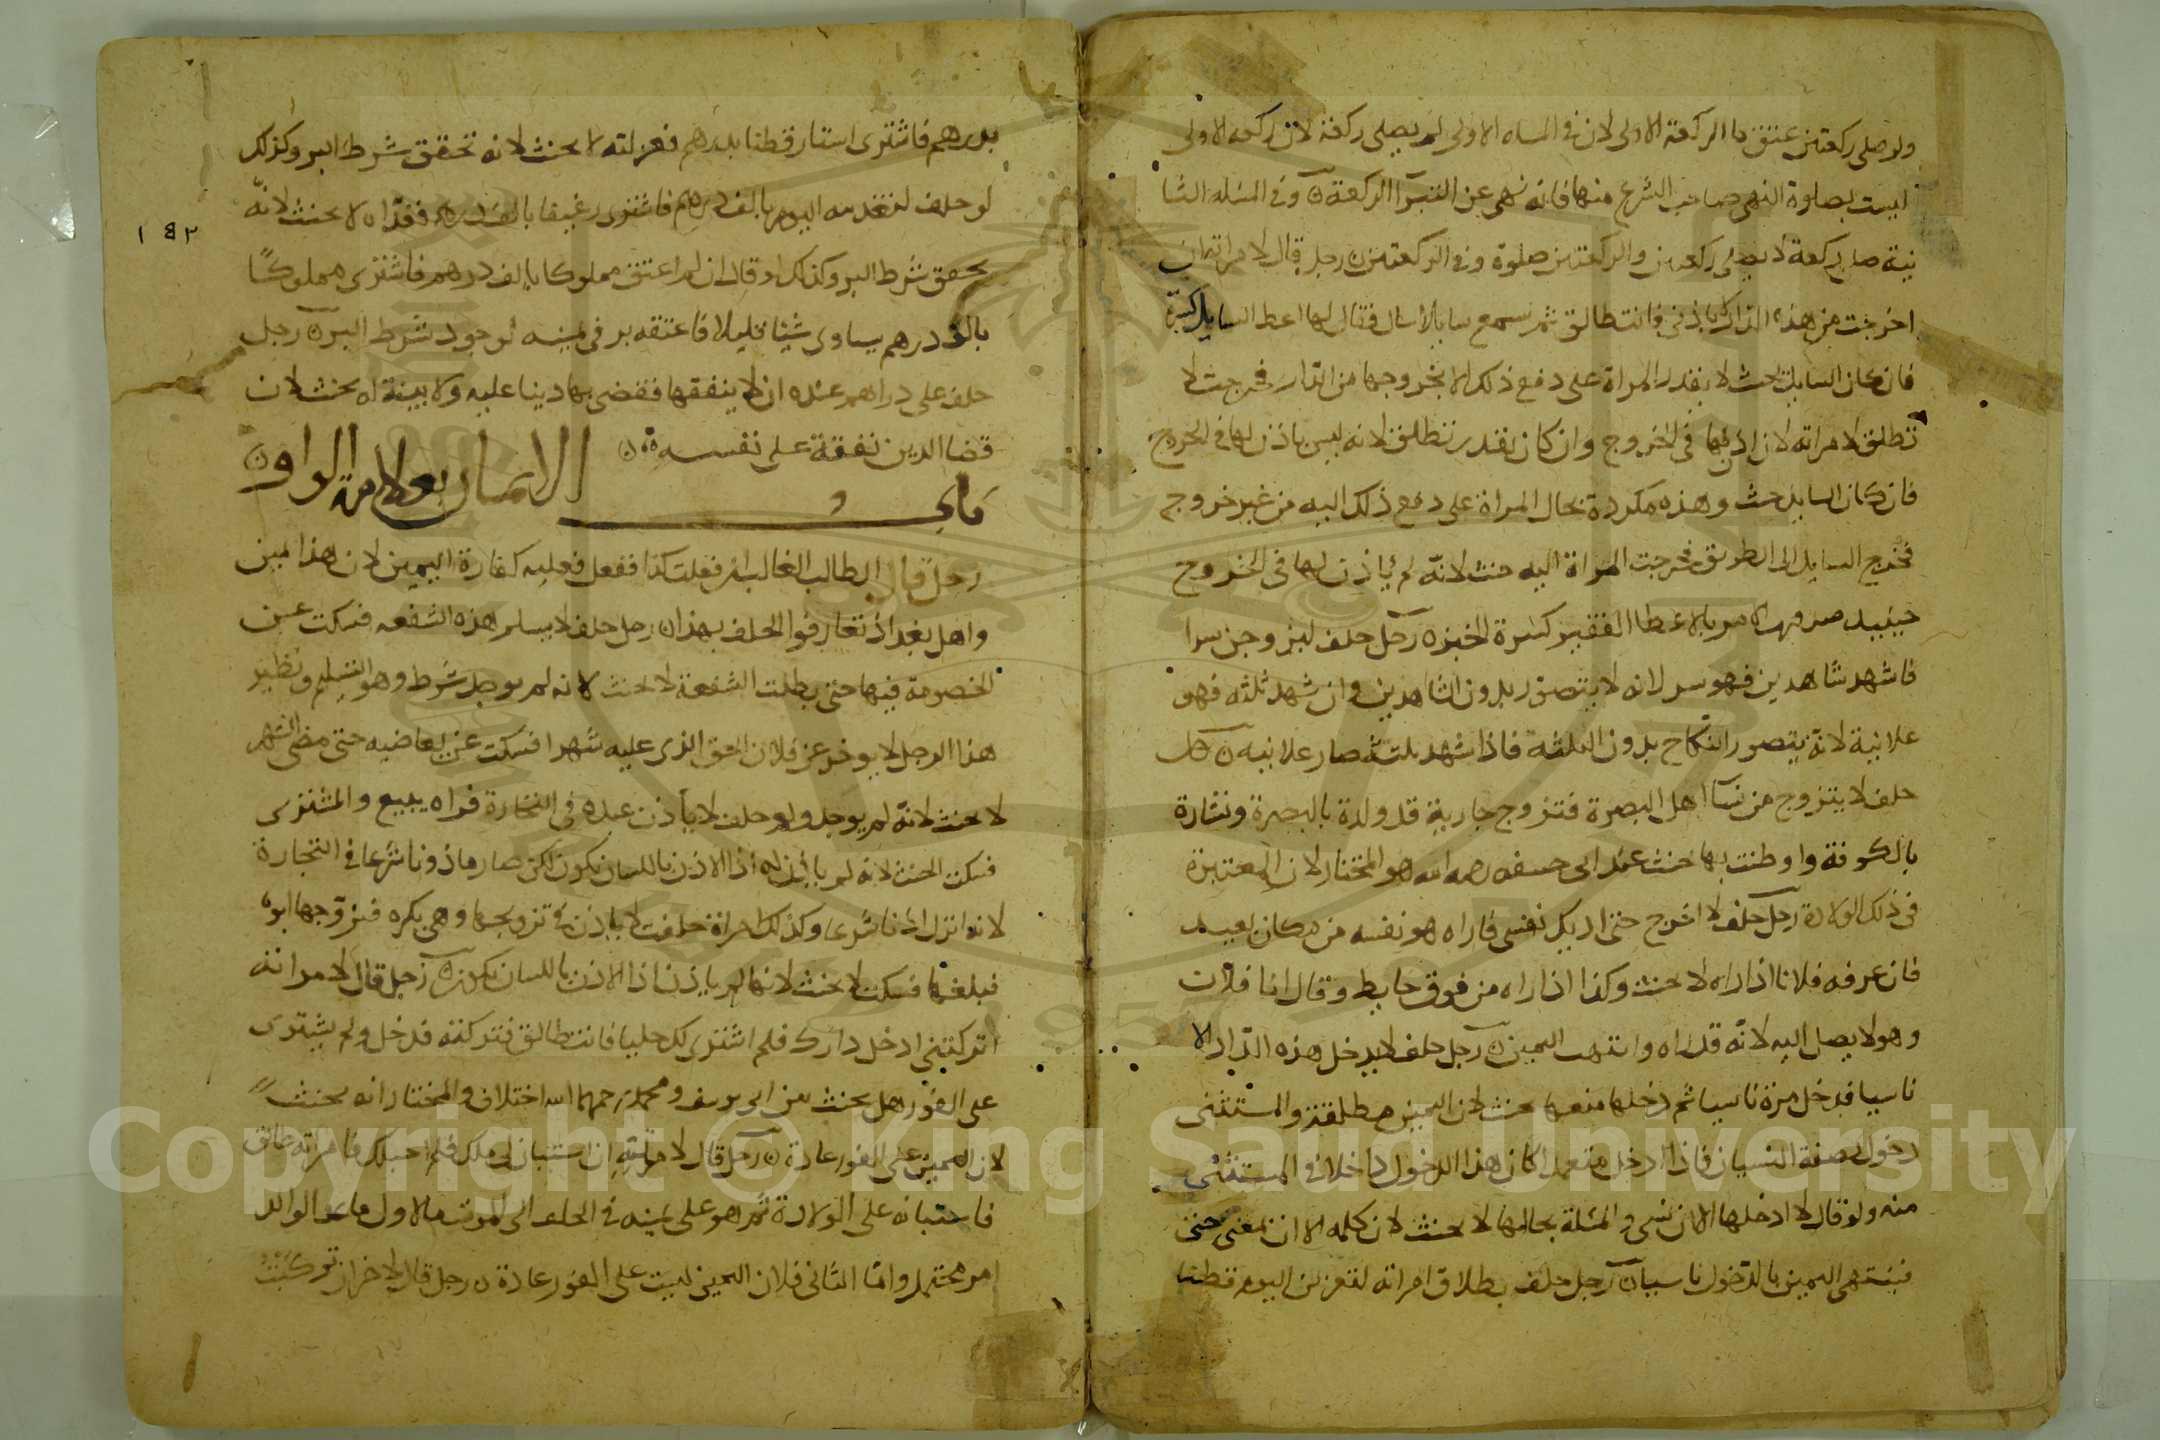 ولو صلى ركعتين عتق بالركعة الاولى لان في المسله الاولى لم يصلى ركعة لان ركعه الاولى
ليست بصلوة النهى صاحب الشرع منها فانه نهى عن البتيرا الركعة ن وفي المسله الثا
نية صلى ركعة لا يصلى ركعتين والركعتين صلوة وفي الركعتين ن رجل قال لامراته ان
اخرجت من هذه الدار الا باذني فانت طالق ثم سمع سايلا سال فقال لها اعط السايل كسرة
فان كان السايل بحيث لا يقدر المراة على دفع ذلك الا بخروجها من الدار فخرجت لا
تطلق لامراته لان اذن لها في الخروج وان كان تقدر تطلق لانه ليس باذن لها في الخروج
فان كان السايل حيث وهذه مكررة بحال المراة على دفع ذلك اليه من غير خروج
فخرج السايل الى الطريق فخرجت المراة اليه حنث لانه لم ياذن لها في الخروج
حينيد صرفها الامر بالاعطا الفقير كسرة الخبز ن رجل حلف ليزوجن سرا
فاشهد شاهدين فهو سر لانه لا يتصور بدون الشاهدين وان شهد ثلثه فهو
علانية لانه يتصور النكاح بدون الثلثه فاذا شهد ثلثة صار علانيه ن
حلف لا يتزوج من نسا اهل البصرة فتزوج جارية قد ولدة بالبصرة ونشارة
بالكوفة واوطنت بها حنث عند ابى حنيفه رحمه الله هو المختار لان المعتبرة
في ذلك الولادة رجل حلف لا اخرج حتى اريك نفسى فاراه هو نفسه من مكان بعيد
فان عرفه فلانا اذا راه لا حنث وكذا اذا راه من فوق حايط وقال انا فلان
وهو لا يصل اليه لانه قد راه وانتهت اليمين ن رجل حلف لا يدخل هذه الدار الا
ناسيا فدخل مرة ناسيا ثم دخلها متعمدا حنث لان اليمين مطلقة والمستثنى
دخول بصفة النسيان فاذا دخل متعمدا كان هذا الدخول داخلا في المستثنى
منه ولو قال لا ادخلها الا ان نسى والمسئلة بحالها لا يحنث لان كلمه الا ان بمعنى حتى
فينتهى اليمين بالدخول ناسيا ن رجل حلف بطلاق امراته لتغزلن اليوم قطنا
بدرهم فاشترى استار قطنا بدرهم فغزلته لا يحنث لانه تحقق شرط البر وكذلك
لو حلف لنغدينه اليوم بالف درهم فاشترى رغيفا بالف درهم فغداه لا يحنث لانه
١٤٢
يحقق شرط البر وكذلك لو قال ان لم اعتق مملوكا بالف درهم فاشترى مملوكًا
بالف درهم يساوى شيئا قليلا فاعتقه بر في يمينه لوجود شرط البر ن رجل
حلف على دراهم عنده ان لا ينفقها فقضى بها دينا عليه ولا بينة له يحنث لان
قضا الدين نفقة على نفسه ن
باب الايمان بعلامة الواو ن
رجل قال بالطالب الغالب ان فعلت كذا ففعل فعليه كفارة اليمين لان هذا يمين
واهل بغداد تعارفوا الحلف بهذا ن رجل حلف لا يسلم هذه الشفعه فسكت عن
الخصومة فيها حتى بطلت الشفعة لا يحنث لانه لم يوجد شرط وهو التسليم ونظير
هذا الرجل لا يوخر عن فلان الحق الذى عليه شهرا فسكت عن يعاضيه حتى مضى الشهر
لا يحنث لانه لم يوجل ولو حلف لا يأذن عبده في التجارة فراه يبيع والمشترى
فسكت الحنث لانه لم يأذن له اذا الاذن باللسان يكون لكن صار ماذونا شرعا في التجارة
لانه انزل اذنا شرعا وكذلك امراة حلفت لا ياذن في تزويجها وهى بكره فزوجها ابوها
فبلغها فسكت لا يحنث لانها لم ياذن اذ الاذن باللسان يكون ن رجل قال لامراته
ان تركتينى ادخل دارك فلم اشترى لك حليا فانت طالق فتركته فدخل ولم يشترى
على الفور هل يحنث بين ابى يوسف ومحمد رحمهما الله اختلاف والمختار انه يحنث
لان اليمين على الفور عادة ن رجل قال لامراته ان حبلك فلم احبلك فامراته طالق
فاحتبانه على الولادة ثم هو على يمينه في الحلف الى الموت مالاول ماعد الوالد
امر محتمل واما الثانى فلان اليمين ليست على الفور عادة ن رجل قال لاخر ان تركت
Copyright © King Saud University
1957